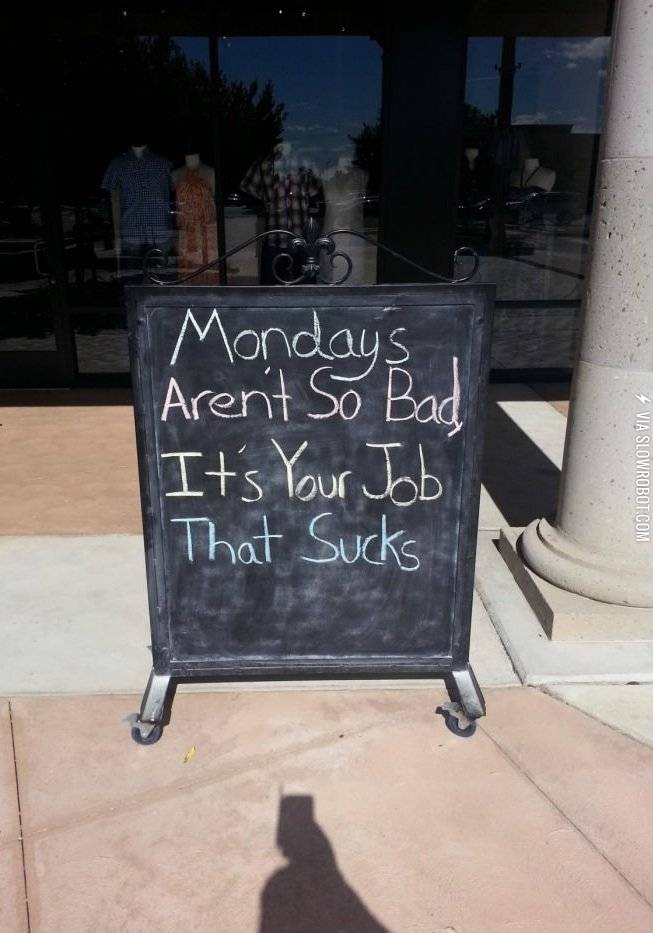 Mondays
Aren't So Bad,
It's Your Job
That Sucks
VIA SLOWROBOT.COM